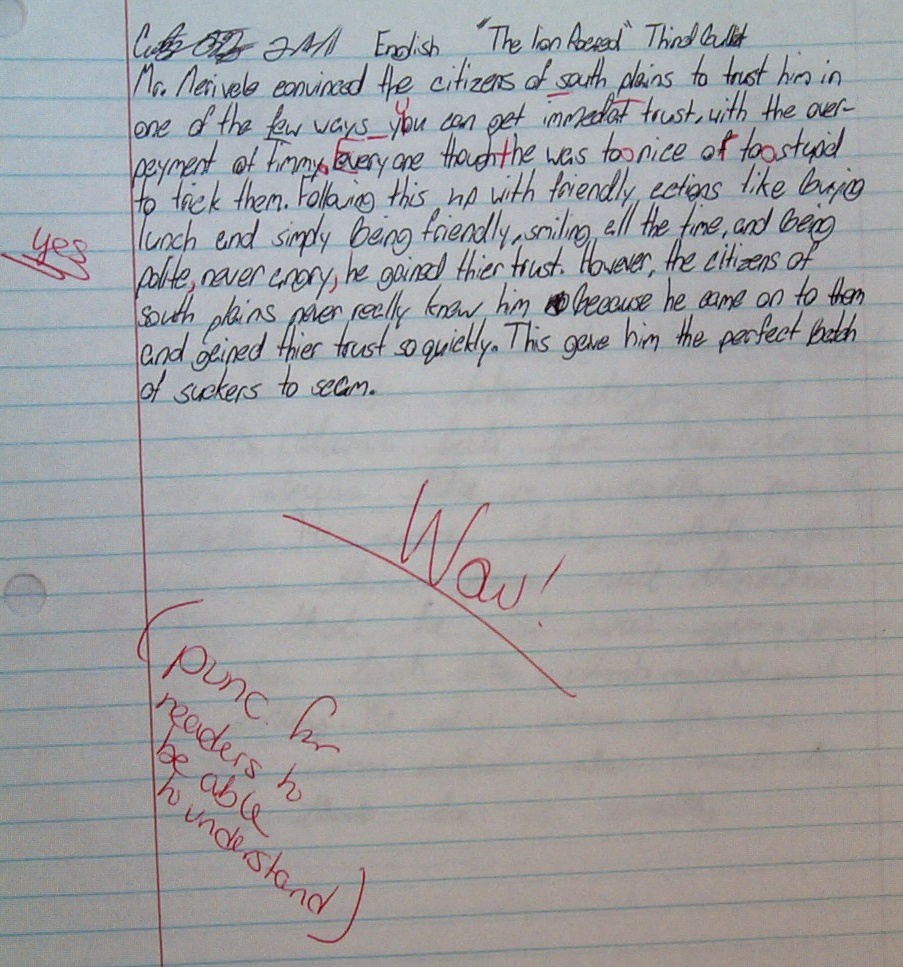 2A11 English "The Ion Raced" Third Bullet
Mr. Merivele convinced the citizens of south plains to trust him in
one of the few ways you can get immediat trust, with the over-
payment of Timmy. Everyone thought he was too nice of too stupid
to trick them. Following this up with friendly ections like buying
lunch and simply being friendly, smiling all the time, and being
polite, never angry, he gained thier trust. However, the citizens of
south plains never really knew him because he came on to them
and geined thier trust so quickly. This gave him the perfect batch
of suckers to scam.
yes
Wow!
(punc. for
readers to
be able
to understand)